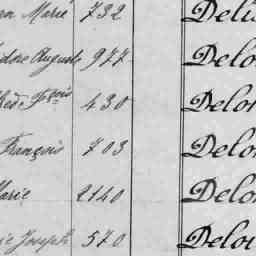 Marie 732 Delis
Auguste 977 Delo
430 Delo
François 703 Delo
Marie 2140 Delo
Joseph 570 Delo